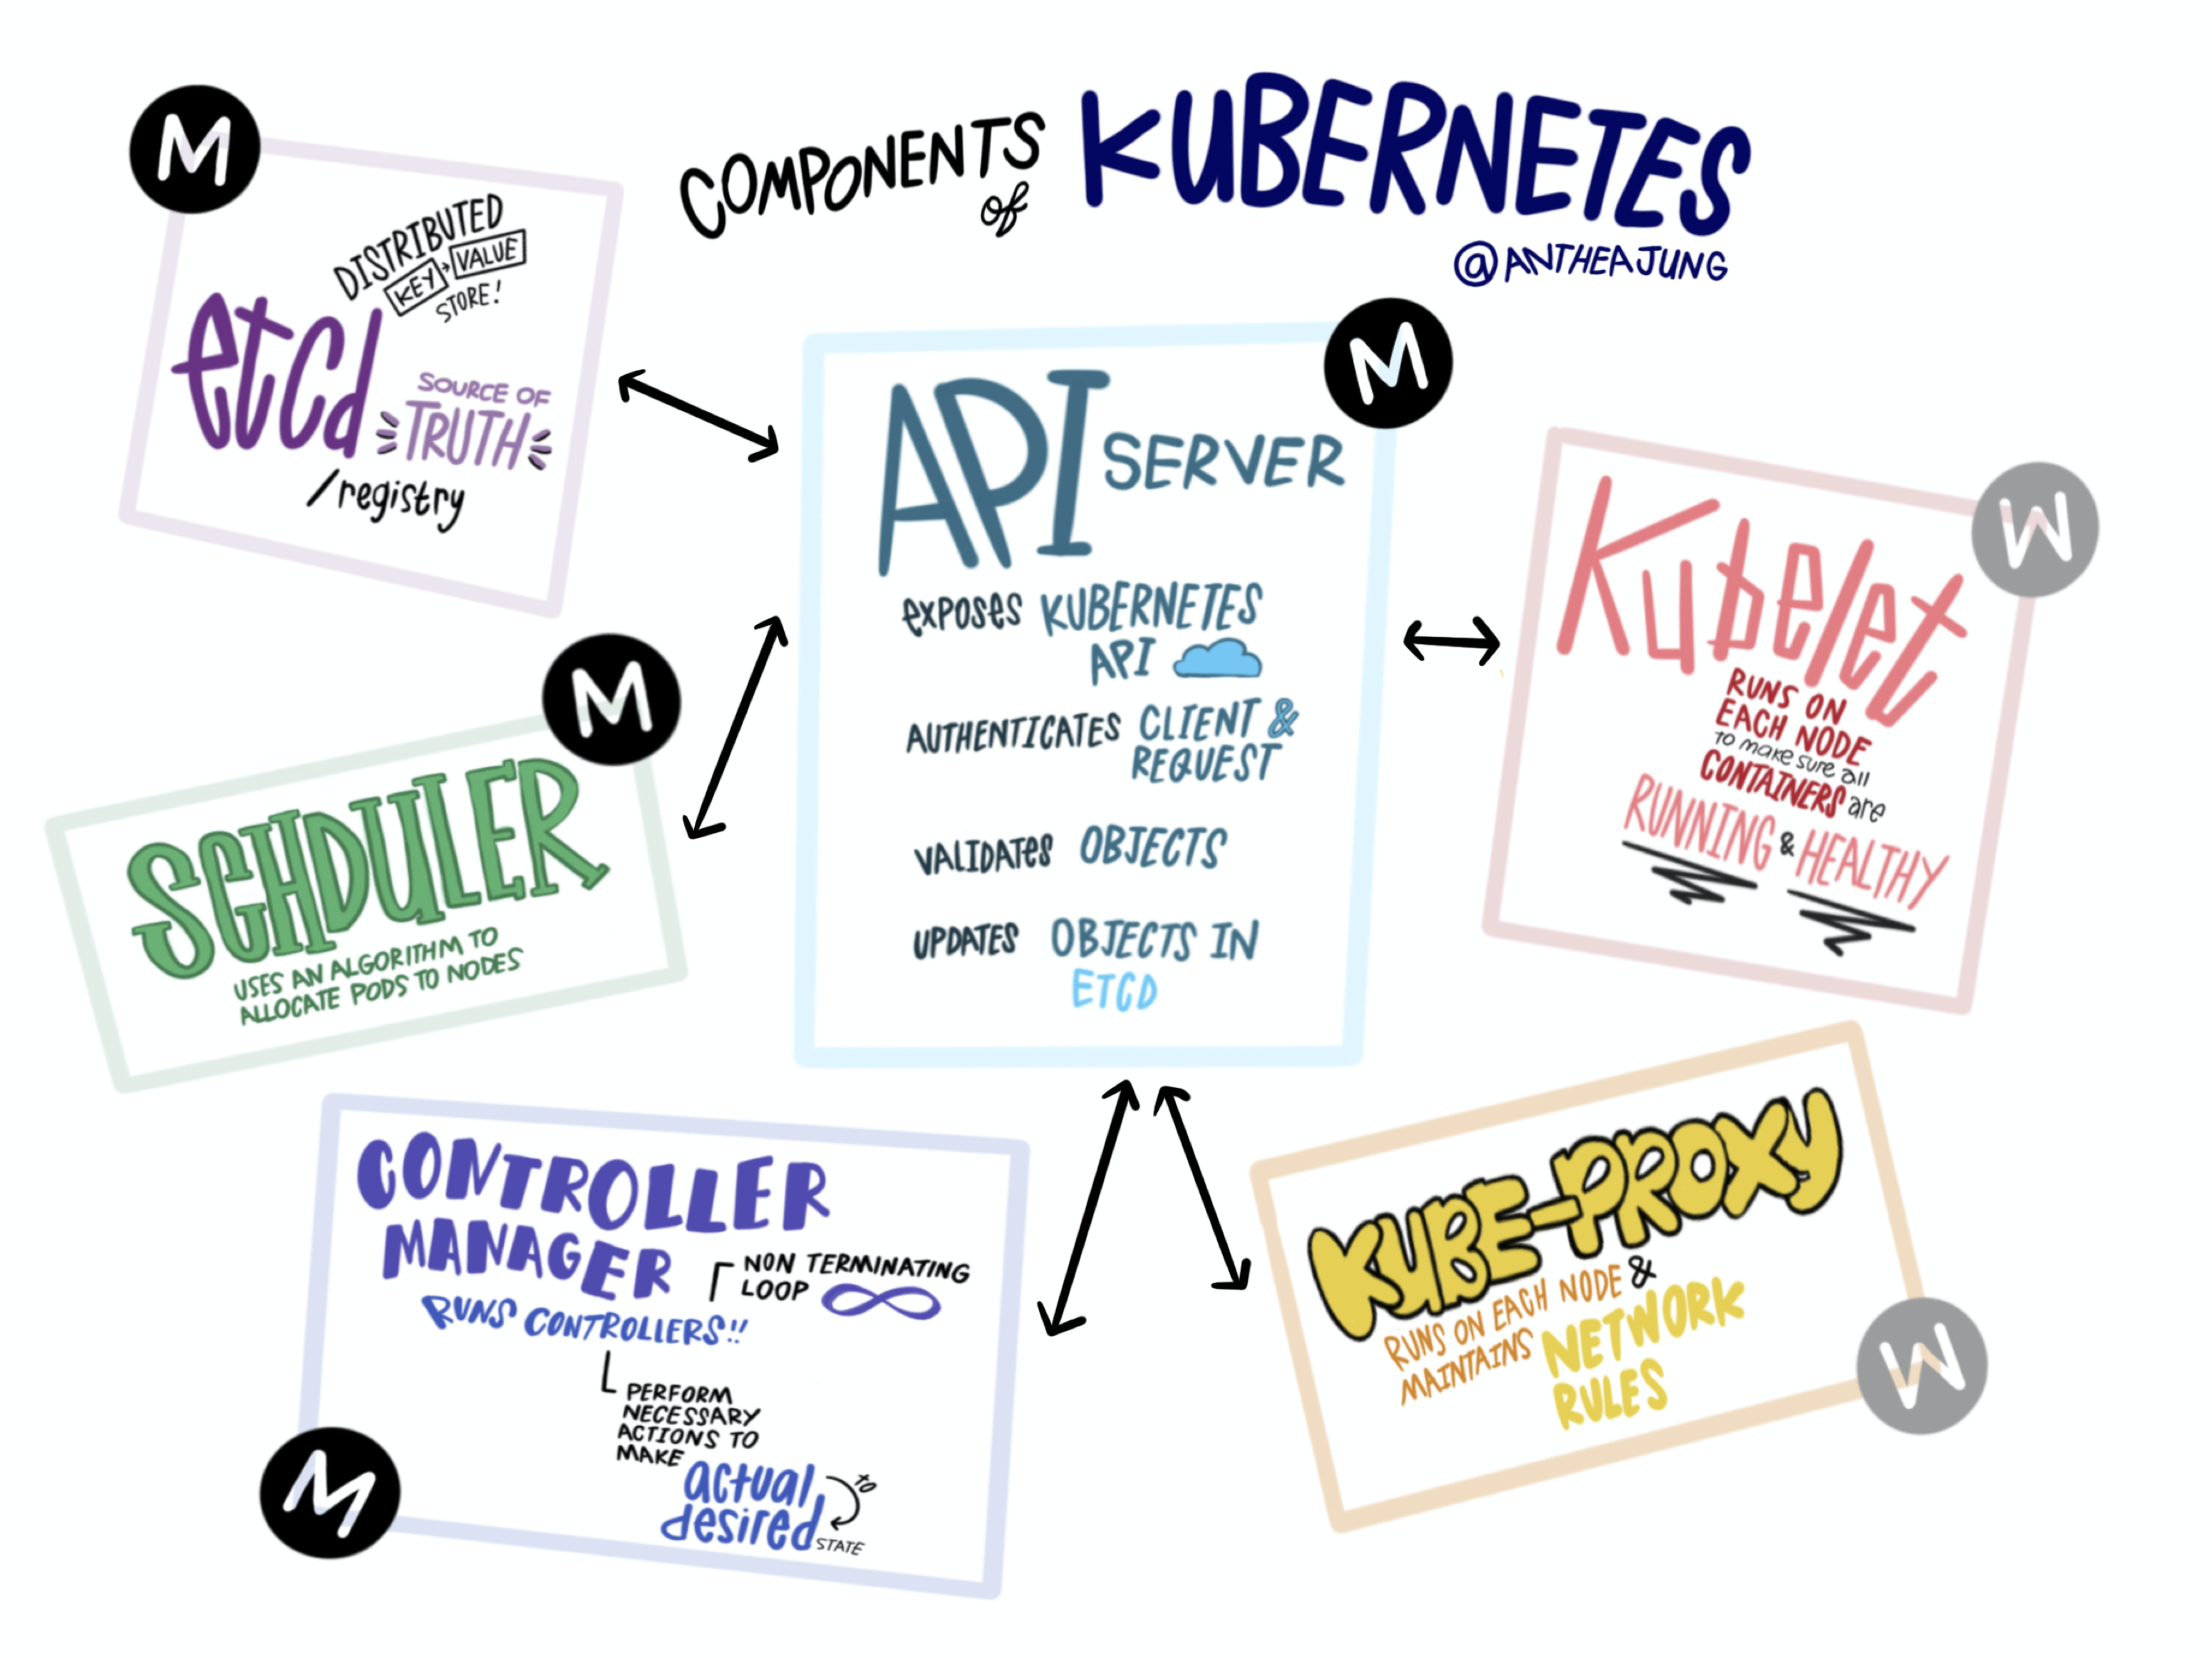 COMPONENTS of KUBERNETES
@ANTHEAJUNG
M
DISTRIBUTED
KEY VALUE
STORE!
etcd
SOURCE OF
TRUTH
/registry
M
API SERVER
exposes KUBERNETES
API
AUTHENTICATES CLIENT &
REQUEST
VALIDATES OBJECTS
UPDATES OBJECTS IN
ETCD
W
Kubelet
RUNS ON
EACH NODE
to make sure all
CONTAINERS are
RUNNING & HEALTHY
M
SCHDULER
USES AN ALGORITHM TO
ALLOCATE PODS TO NODES
CONTROLLER
MANAGER
NON TERMINATING
LOOP
RUNS CONTROLLERS!!
PERFORM
NECESSARY
ACTIONS TO
MAKE
actual
to
desired
STATE
M
KUBE-PROXY
RUNS ON EACH NODE &
MAINTAINS NETWORK
RULES
W